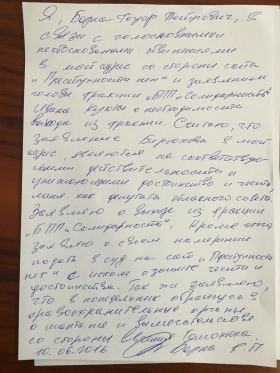 Я, Барна Федор Петрович, в
связи с голословными
необоснованными обвинениями
в мой адрес со стороны сайта
„Преступности нет" и заявлением
головы фракции „БПП „Солидарность"
Ивана Кухты о необходимости
выхода из фракции. Считаю, что
заявление в мой
адрес, являются не соответствую-
щими действительности и
унижающими достоинство и честь
меня как депутата областного совета.
Заявляю о выходе из фракции
„БПП „Солидарность". Кроме этого
заявляю о своем намерении
подать в суд на сайт „Преступности
нет" с иском о защите чести и
достоинства. Так же заявляю,
что в понедельник обращусь в
правоохранительные органы
о шантаже и вымогательстве
со стороны
10.06.2016 Барна Ф.П.